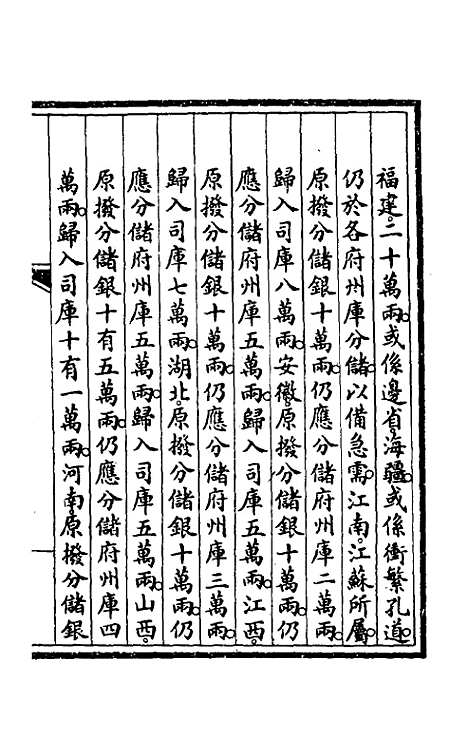 福建。二十萬兩。或係邊省。海疆。或係衝繁孔道。
仍於各府州庫分儲。以備急需。江南。江蘇所屬。
原撥分儲銀十萬兩。仍應分儲府州庫二萬兩。
歸入司庫八萬兩。安徽。原撥分儲銀十萬兩。仍
應分儲府州庫五萬兩。歸入司庫五萬兩。江西。
原撥分儲銀十萬兩。仍應分儲府州庫三萬兩。
歸入司庫七萬兩。湖北。原撥分儲銀十萬兩。仍
應分儲府州庫五萬兩。歸入司庫五萬兩。山西。
原撥分儲銀十有五萬兩。仍應分儲府州庫四
萬兩。歸入司庫十有一萬兩。河南。原撥分儲銀